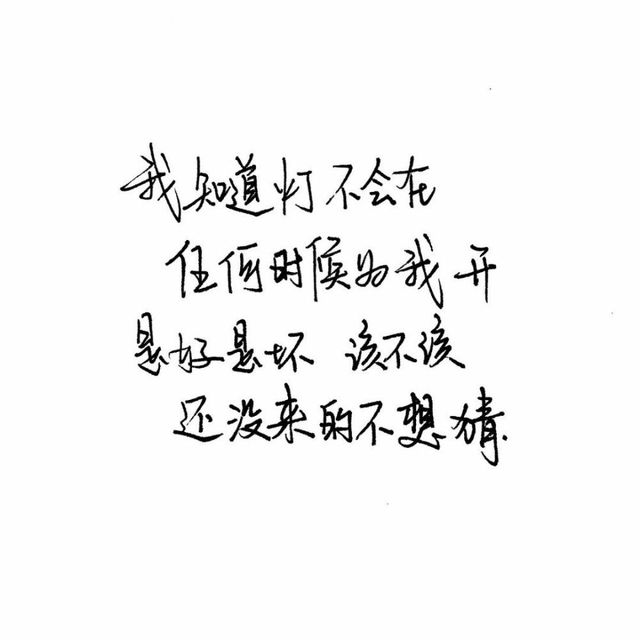 我知道灯不会在
任何时候为我开
是好是坏 该不该
还没来的不想猜.